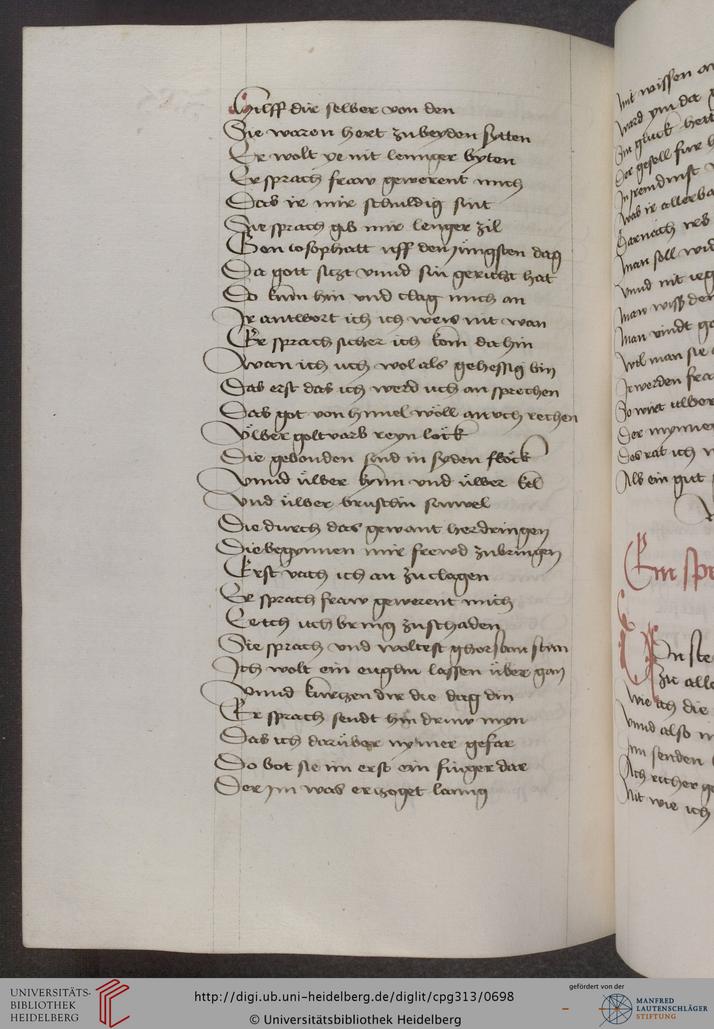 Hilff dir selber von den
Sie waren hert zu beyden sytten
Er wolt ye nit lenniger byten
Er sprach fraw gewerent mich
Das ir mir schuldig sint
Sie sprach gib mir lenger zil
Gen iosophatt uff den jüngsten dag
Da gott sitzt vnnd sin gericht hat
So kum hin vnd clag mich an
Ir antwort ich ich weis nit wan
Er sprach sicher ich kom da hin
Wan ich uch wol als gehessig bin
Das erst das ich werd uch an sprechen
Das got von himel wöll an uch rechen
Vͤlber golt varb reyn löck
Die gebonden sind in syden flöck
Vnnd ülber kynn vnd ülber kel
Vnd ülber brustlin sinwel
Die durch das gewant her dringen
Die begynnen mir frewd zu bringen
Erst vach ich an zu clagen
Er sprach fraw gewerent mich
E ich uch bring zu schaden
Sie sprach vnd woltest ghorsam sein
Ich wolt ein euglin lassen über gan
Vnnd kurtzen dir die dag din
Er sprach sendt hin drin mon
Das ich darüber nymer gefar
Do bot sie im erst ein finger dar
Der im was erzoget lanng
mit wissen
ward ym dat
Im glück hett
Der gesell fur
In fremd
Was ir allerba
Darnach
Man soll wid
Vnnd nit
Man wiß den
Man vindt
Wil man sie
Ir werden fra
So wirt ulber
Der mynnen
Des rat ich
Als ein gut
Ein spr
zu alle
Wie ich die
Vnnd also
Im senden
Ach richer
Nit wie ich
UNIVERSITÄTS-
BIBLIOTHEK
HEIDELBERG
http://digi.ub.uni-heidelberg.de/diglit/cpg313/0698
© Universitätsbibliothek Heidelberg
gefördert von der
MANFRED
LAUTENSCHLÄGER
STIFTUNG